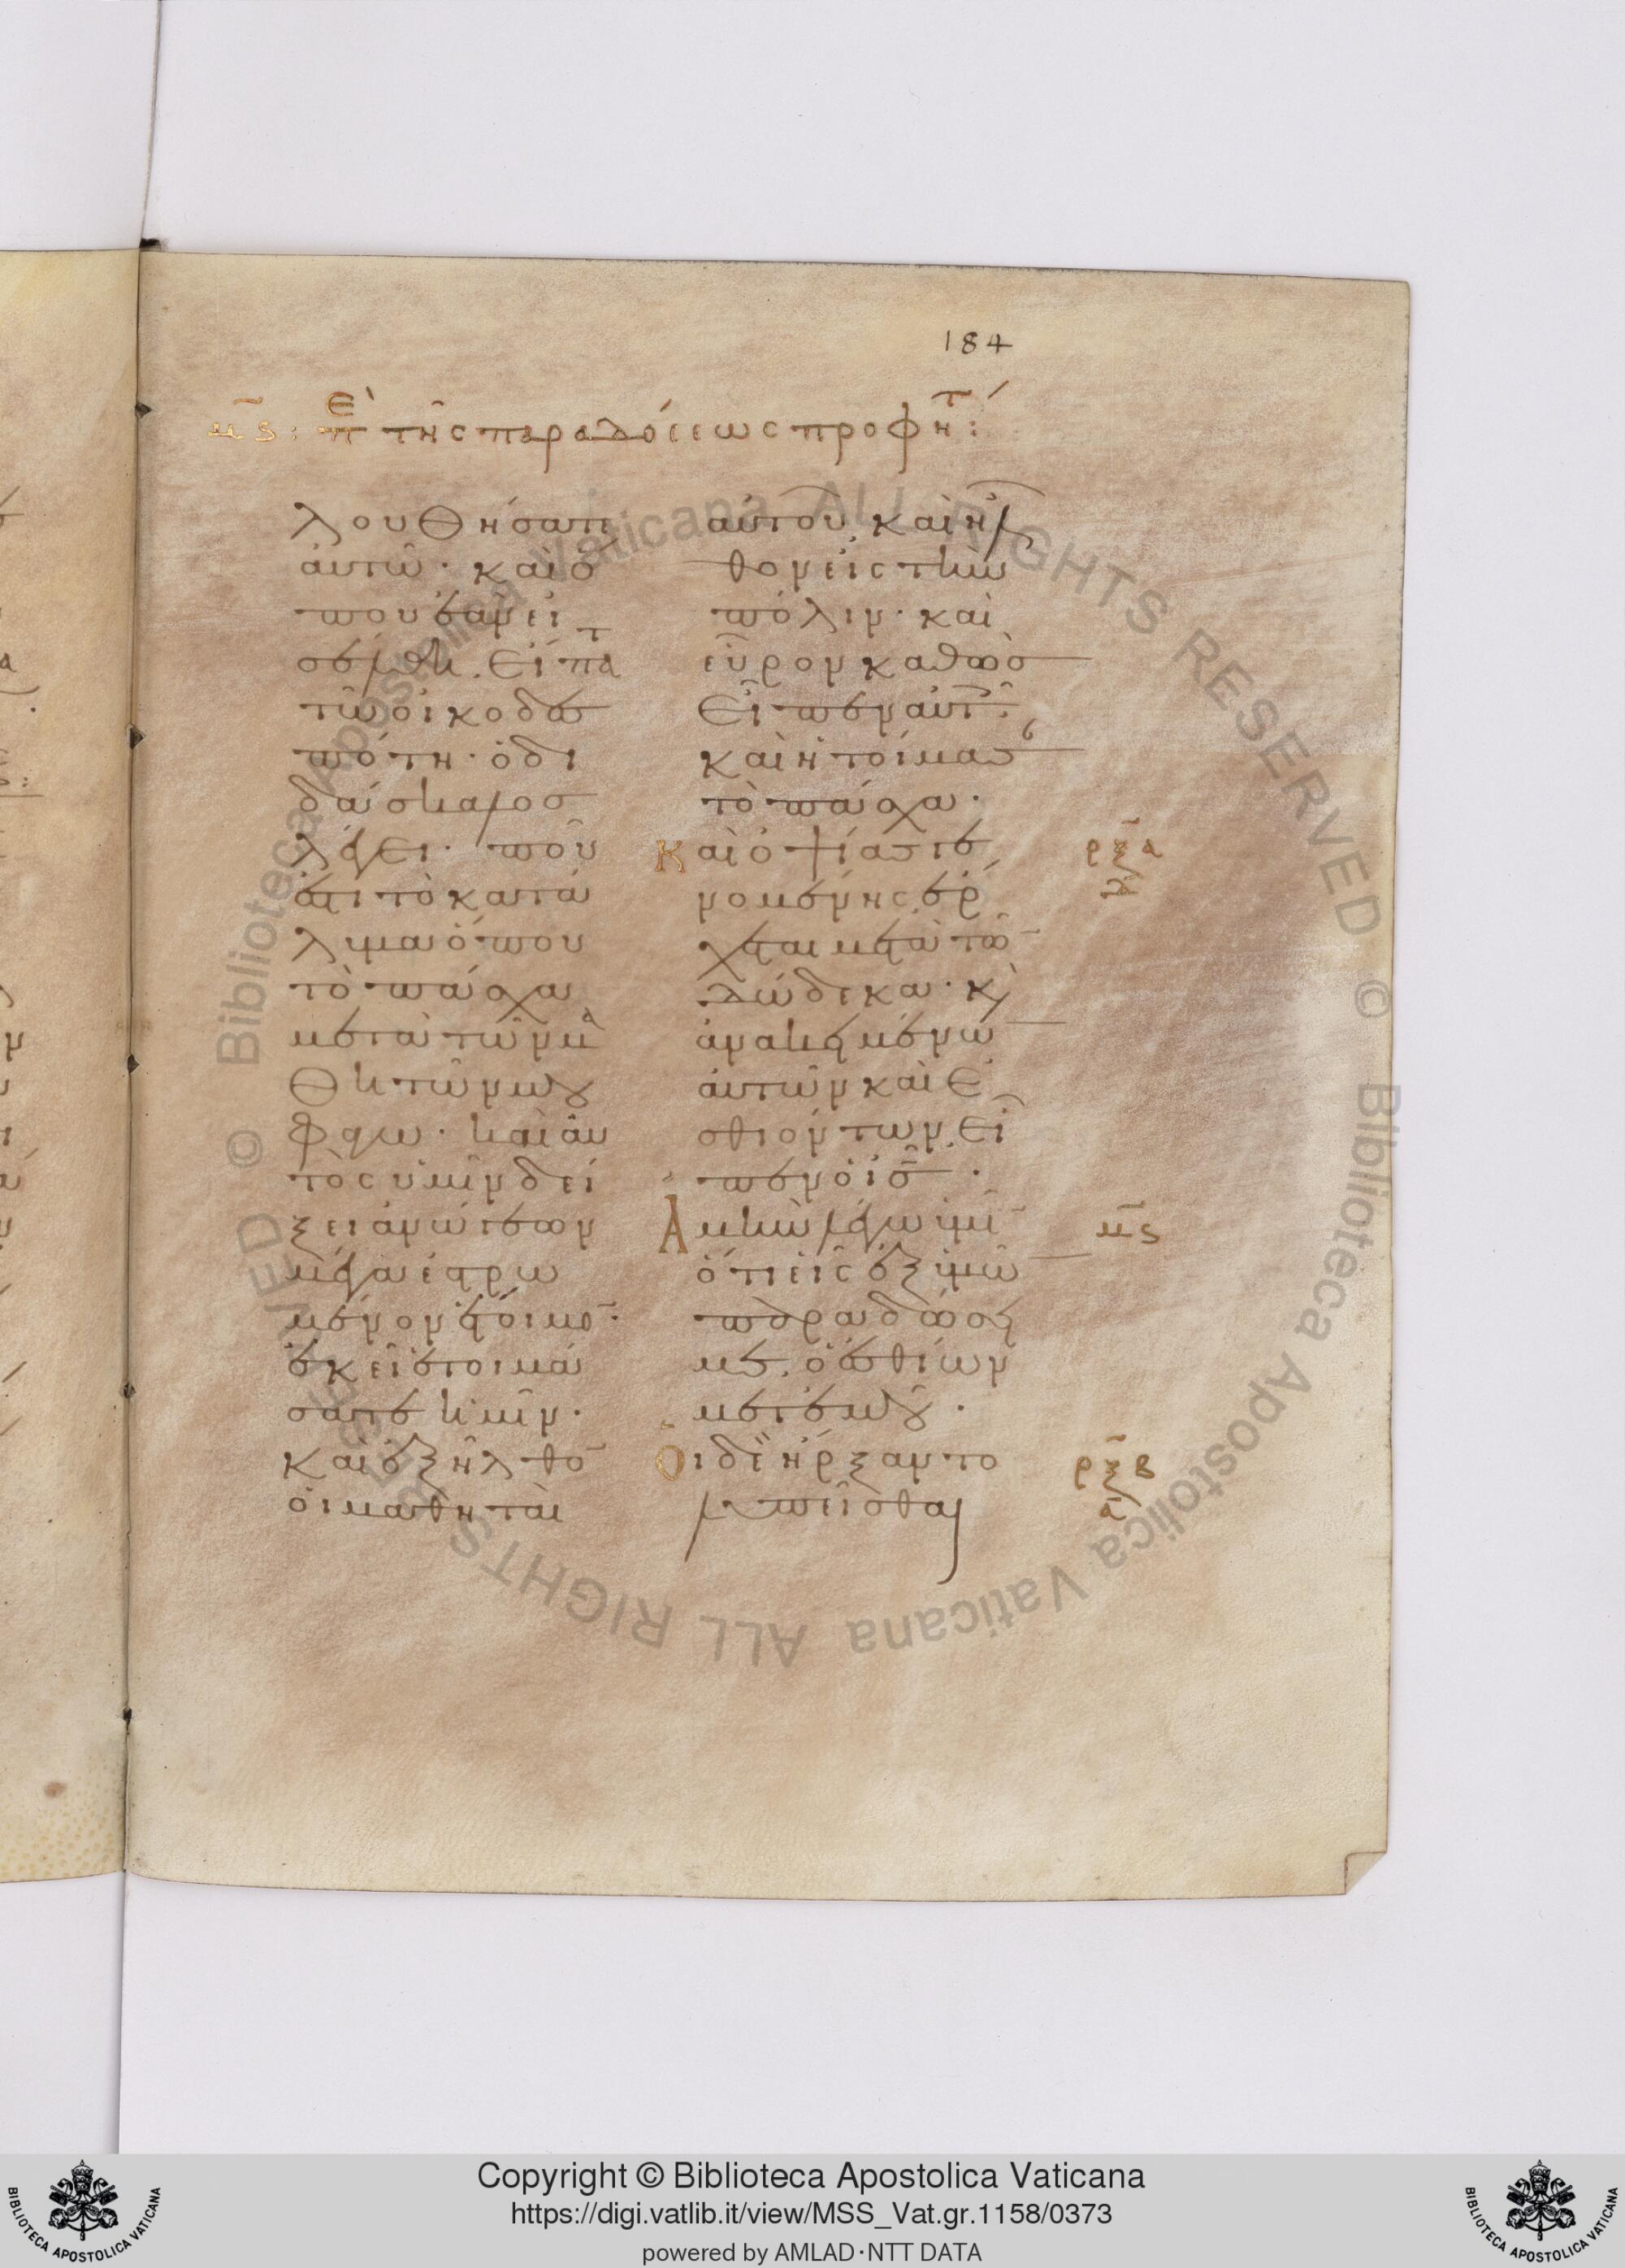 184
μς : Περὶ τῆς παραδόσεως προφητ :
λουθήσατε
αὐτῶ· καὶ ὅ
που ἐὰν εἰ
σέλθη. εἴπατ
τῶ οἰκοδεσ
πότη· ὁ δι
δάσκαλος
λέγει· ποῦ
ἐστι τὸ κατά
λυμα ὅπου
τὸ πάσχα
μετὰ τῶν μα
θητῶν μου
φάγω· καὶ αὐ
τὸς ὑμῖν δεί
ξει ἀνώγεων
μέγα ἐστρω
μένον ἕτοιμον·
ἐκεῖ ἑτοιμά
σατε ἡμῖν·
καὶ ἐξῆλθον
οἱ μαθηταὶ
αὐτοῦ καὶ ἦλ
θον εἰς τὴν
πόλιν· καὶ
εὗρον καθὼσ
εἶπεν αὐτοῖς·
καὶ ἡτοίμασαν
τὸ πάσχα·
καὶ ὀψίας γε
νομένης ἔρ
χεται μετὰ τῶν
δώδεκα· καὶ
ἀνακειμένων
αὐτῶν καὶ ἐ
σθιόντων, εἶ
πεν ὁ ις·
Ἀμὴν λέγω ὑμῖν
ὅτι εἷς ἐξ ὑμῶν
παραδώσει
με. ὁ ἐσθίων
μετ' ἐμοῦ·
Οἱ δὲ ἤρξαντο
λυπεῖσθαι
ρξα
δ
μς
ρξβ
α
Copyright © Biblioteca Apostolica Vaticana
https://digi.vatlib.it/view/MSS_Vat.gr.1158/0373
powered by AMLAD·NTT DATA
BIBLIOTECA APOSTOLICA VATICANA
BIBLIOTECA APOSTOLICA VATICANA
© Biblioteca Apostolica Vaticana ALL RIGHTS RESERVED © Biblioteca Apostolica Vaticana ALL RIGHTS RESERVED